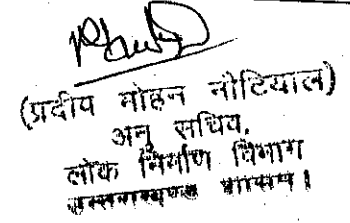 (प्रदीप मोहन नौटियाल)
अनु सचिव,
लोक निर्माण विभाग
शासन।